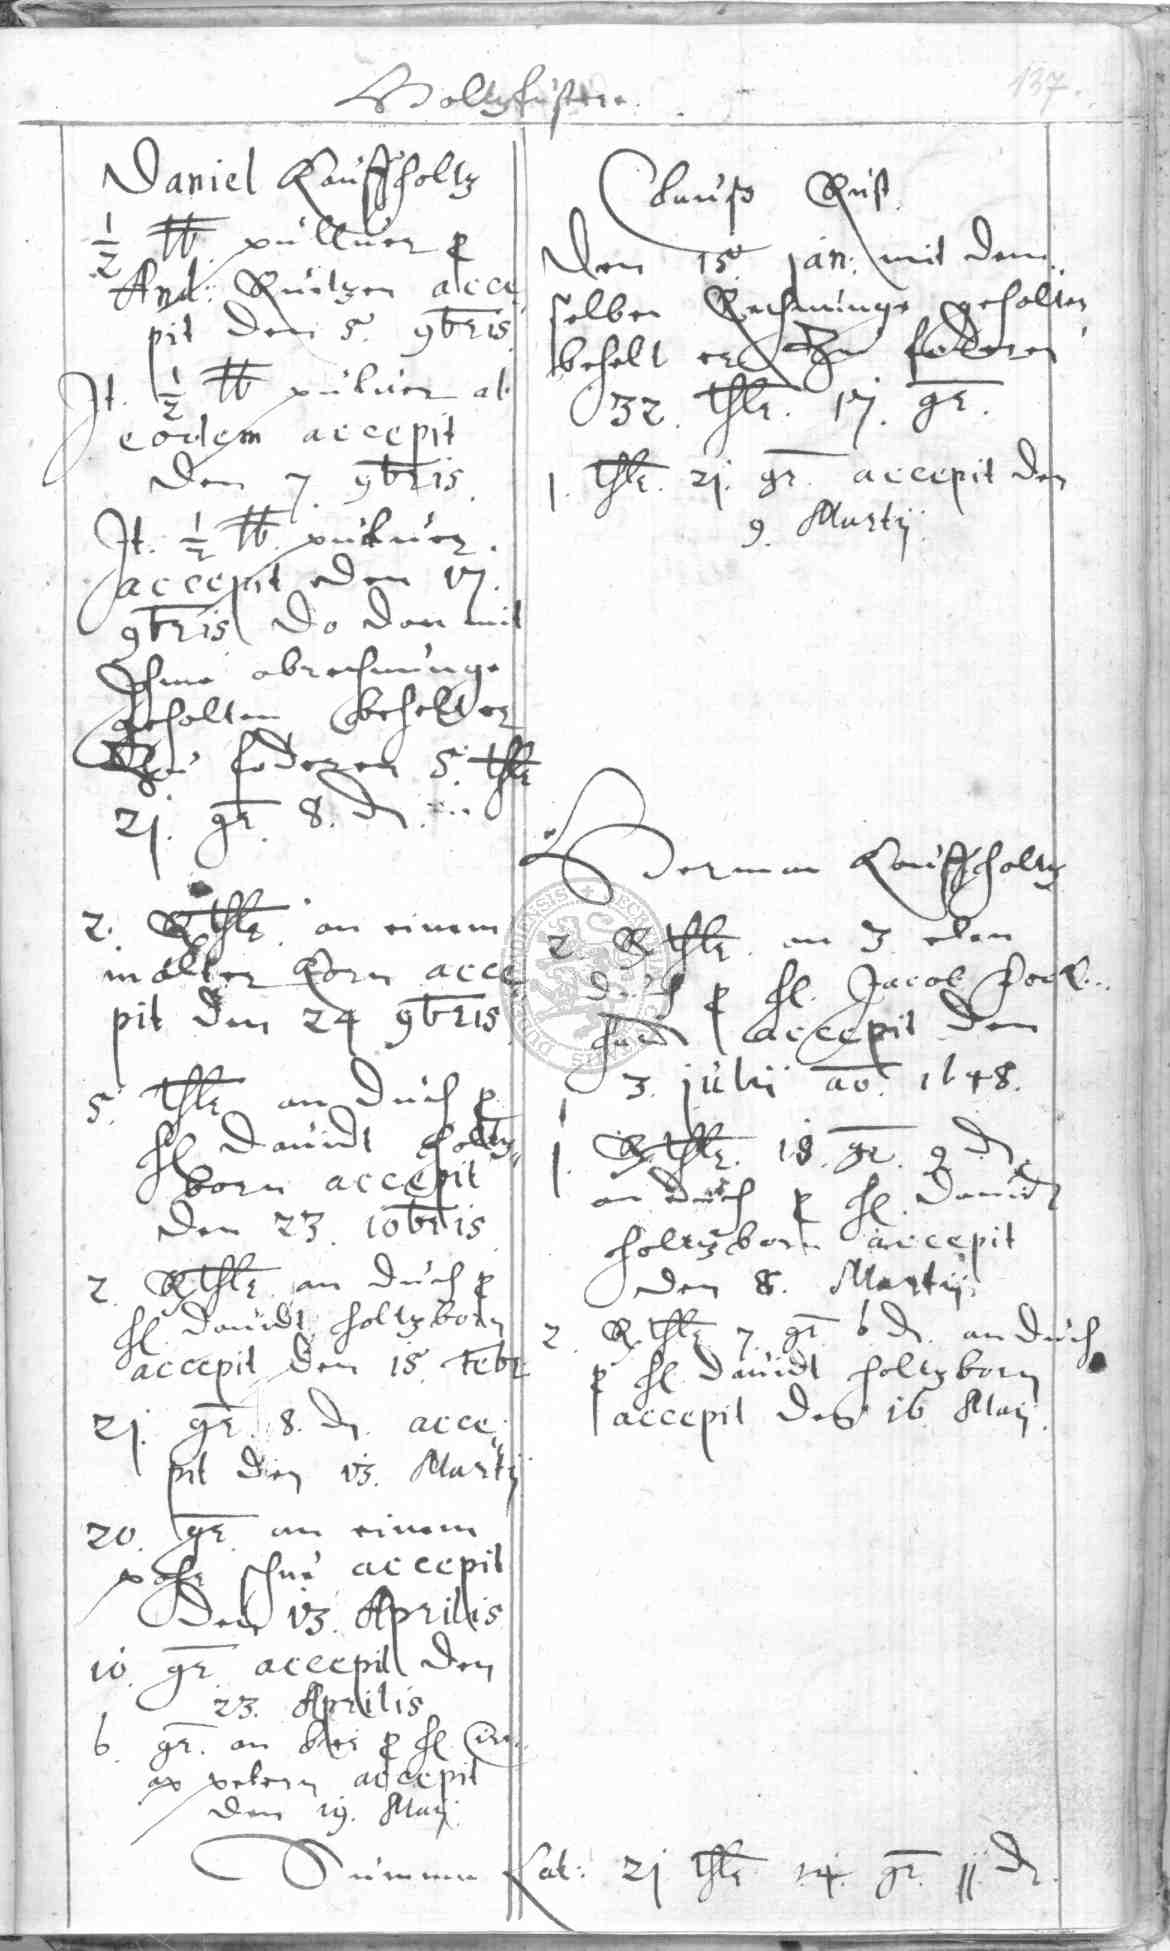 Holtzfuster.
137.
Daniel Kauffholtz
1/2 lb. puluer p
And: Rützen acce
pit den 5. 9bris
It. 1/2 lb puluer ab
eodem accepit
den 7. 9bris.
It. 1/2 lb. puluer.
accepit eden 17.
9bris do dan mit
Ihme abrechnunge
geholten behelt er
zu foderen 5. thlr
21. gr. 8. d.
2. Rthlr. an einem
malter Korn acce
pit den 24 9bris
5. thlr an duch p
hl Dauidt Holtz
born accepit
den 23. 10bris
2. Rthlr an duch p
hl. Dauidt holtzborn
accepit den 15. febr
21. gr. 8. d. acce
pit den 13. Martij
20. gr. an einem
pahr schue accepit
den 13. Aprilis
10. gr accepit den
23. Aprilis
6. gr. an bier p hl
petern accepit
den 19. Maij
Clauß Rust.
Den 15. jan: mit dem
selben Rechnunge geholten
behelt er zu foderen
32. thlr. 17. gr.
1. thlr. 21. gr. accepit den
9. Martij.
Herman Kauffholtz
2. Rthlr. an 3 elen
duch p hl. Jacob
accepit den
3. julij ao. 1648.
1. Rthlr. 18. gr. 9 d.
an duch p hl. Dauidt
holtzborn accepit
den 8. Martij
2. Rthlr. 7. gr 6 d. an duch
p hl Dauidt holtzborn
accepit den 16 Maij.
Summa Lat: 21 thlr 14. gr. 11. d.